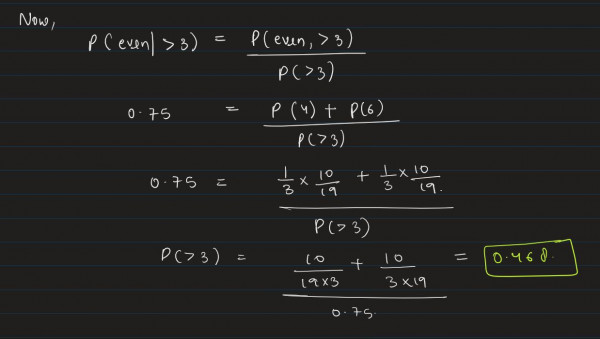 Now,
P(even| >3) = P(even, >3) / P(>3)
0.75 = P(4) + P(6) / P(>3)
0.75 = 1/3 × 10/19 + 1/3 × 10/19. / P(>3)
P(>3) = 10/19×3 + 10/3×19 / 0.75. = 0.468.